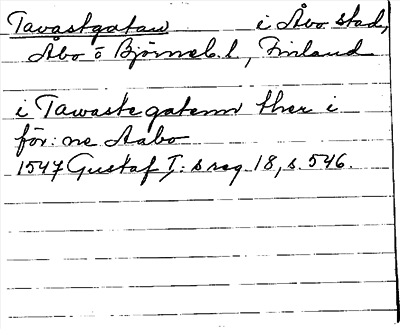 Tavastgatan i Åbo stad,
Åbo o Björneb. l, Finland
i Tawaste gatenn ther i
för: ne Aabo
1547 Gustaf I: s reg 18, s. 546.